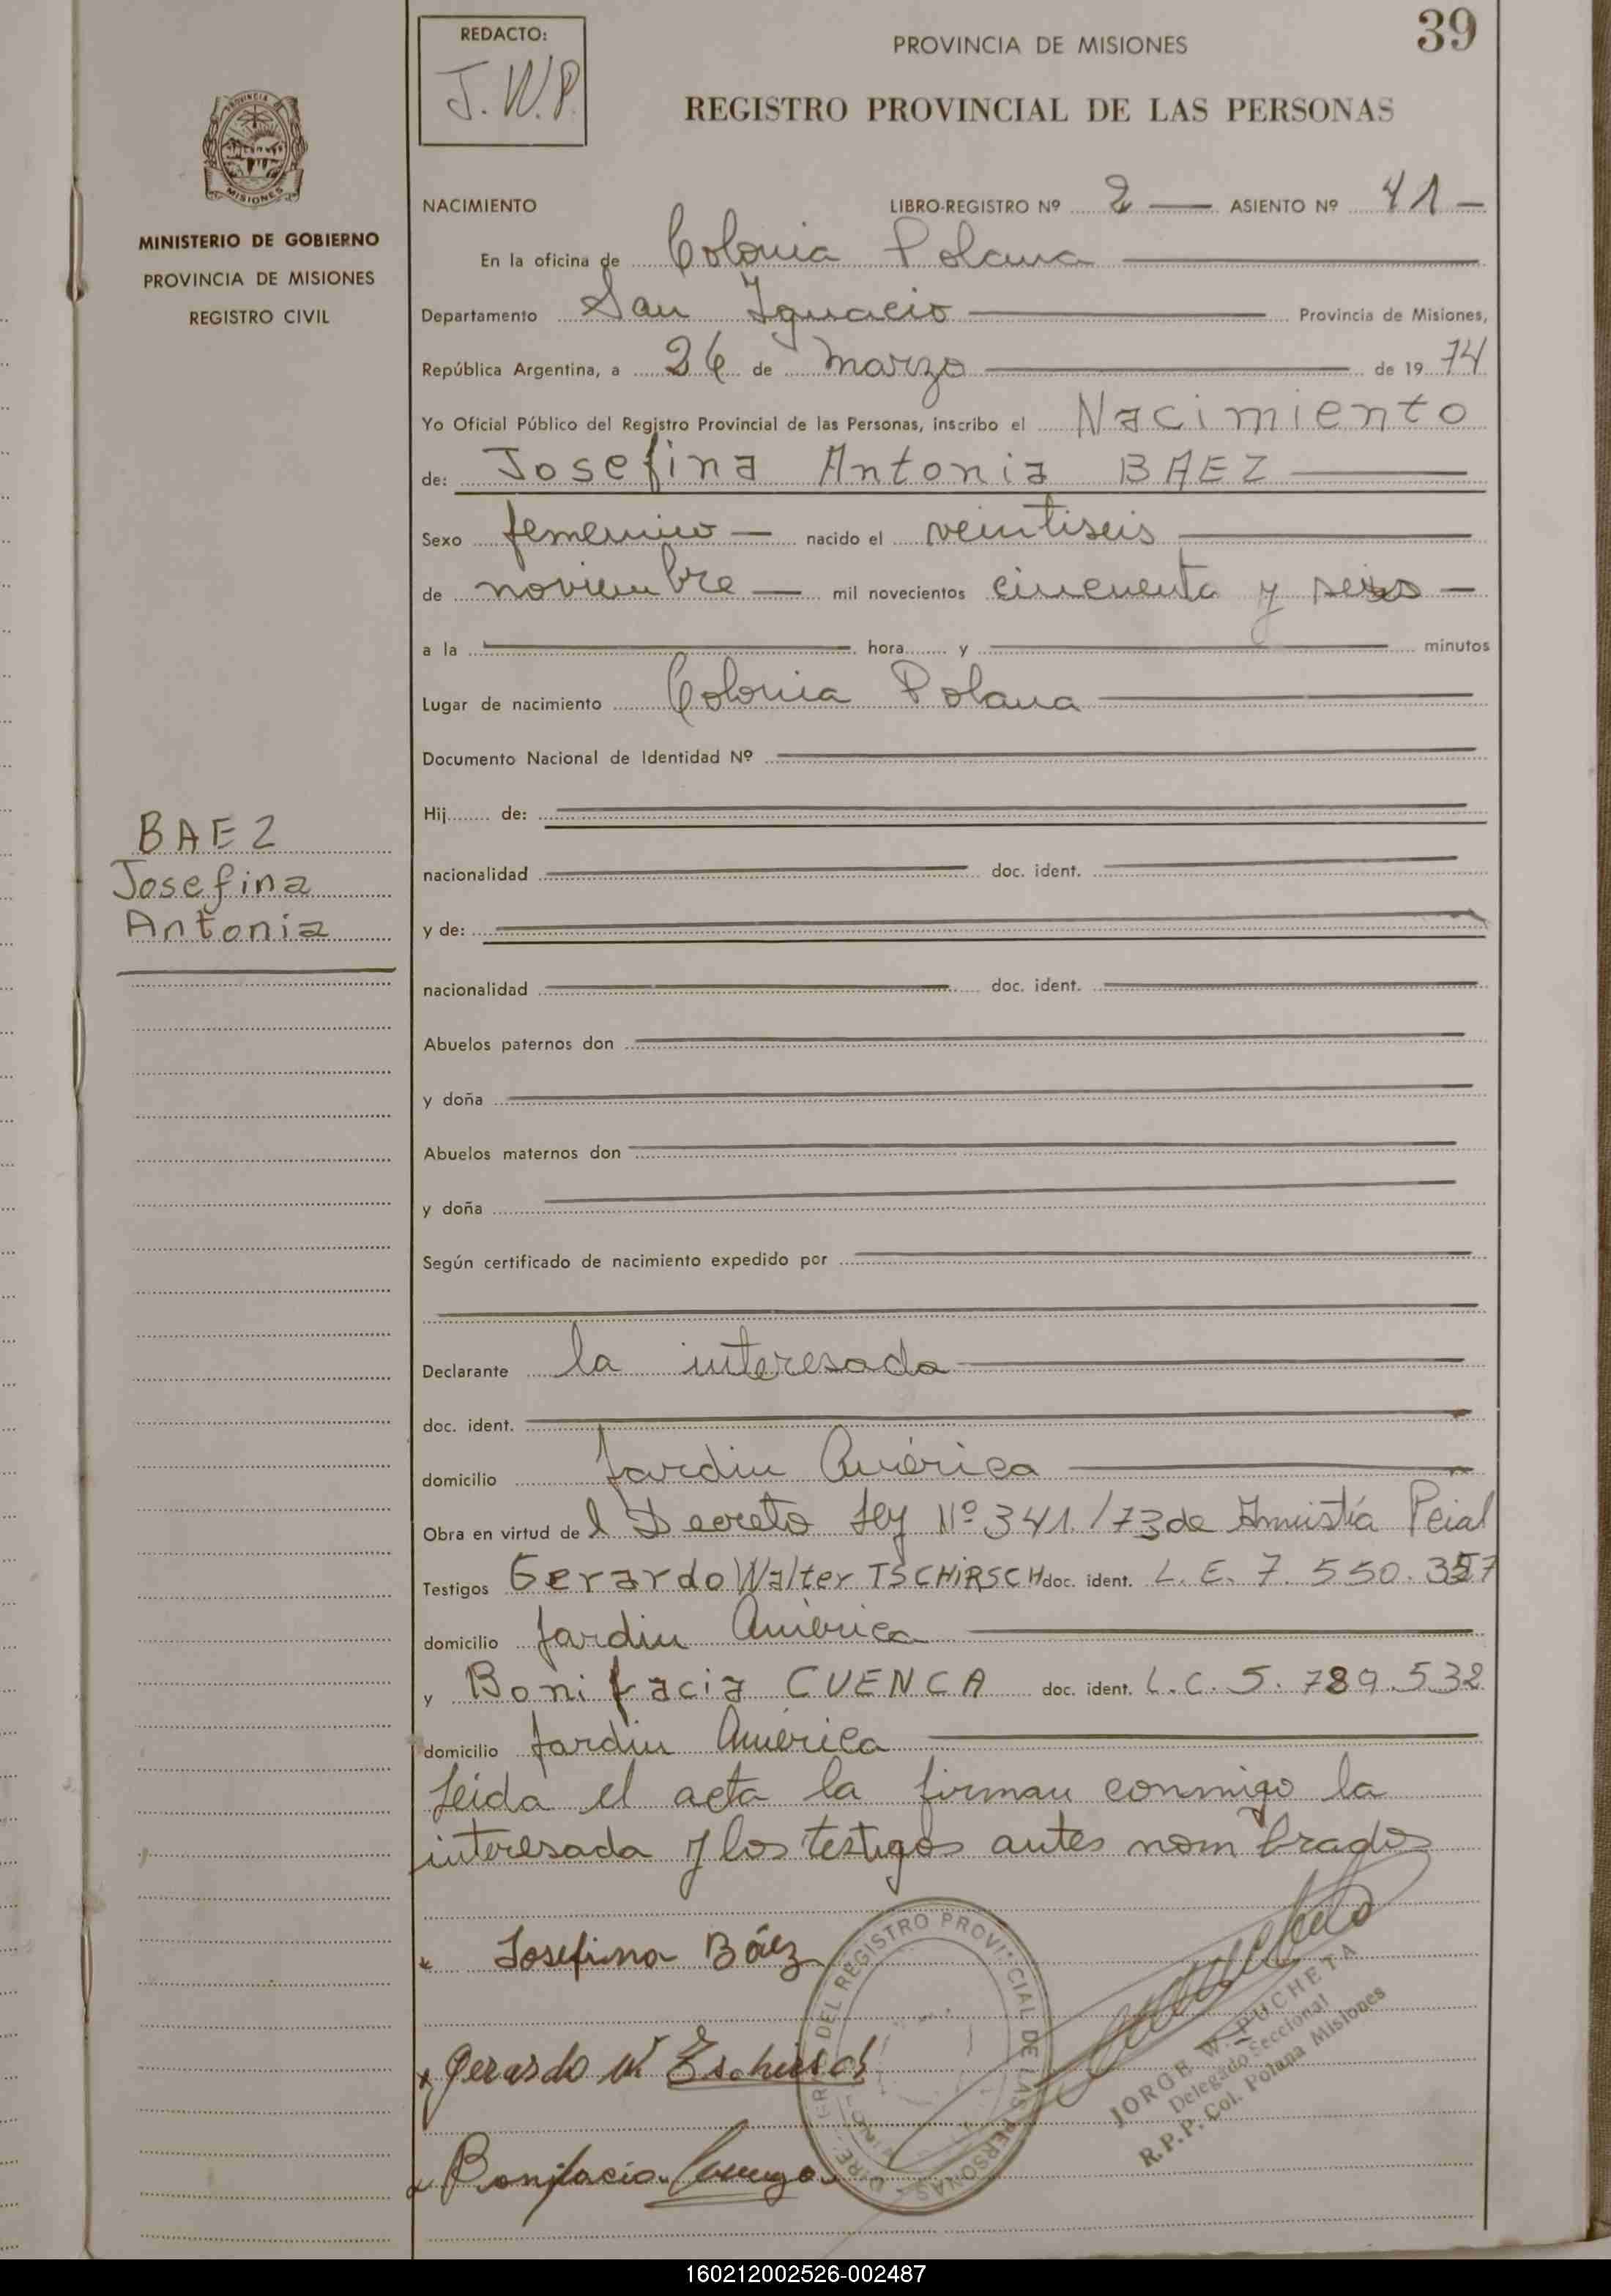 39
REDACTO:
J.W.P.
PROVINCIA DE MISIONES
REGISTRO PROVINCIAL DE LAS PERSONAS
PROVINCIA
MISIONES
MINISTERIO DE GOBIERNO
PROVINCIA DE MISIONES
REGISTRO CIVIL
NACIMIENTO LIBRO-REGISTRO Nº 2 — ASIENTO Nº 41 —
En la oficina de Colonia Polana
Departamento San Ignacio Provincia de Misiones,
República Argentina, a 26 de marzo de 1974
Yo Oficial Público del Registro Provincial de las Personas, inscribo el Nacimiento
de: Josefina Antonia BAEZ
Sexo femenino — nacido el veintiseis
de noviembre — mil novecientos cincuenta y seis —
a la hora y minutos
Lugar de nacimiento Colonia Polana
Documento Nacional de Identidad Nº
BAEZ
Josefina
Antonia
Hij de:
nacionalidad doc. ident.
y de:
nacionalidad doc. ident.
Abuelos paternos don
y doña
Abuelos maternos don
y doña
Según certificado de nacimiento expedido por
Declarante la interesada
doc. ident.
domicilio Jardin América
Obra en virtud del Decreto Ley Nº 341/73 de Amnistía Pcial
Testigos Gerardo Walter TSCHIRSCH doc. ident. L.E. 7.550.357
domicilio Jardin América
y Bonifacia CUENCA doc. ident. L.C. 5.789.532
domicilio Jardin América
Leida el acta la firman conmigo la
interesada y los testigos antes nombrados
Josefina Báez
Gerardo W
Bonifacia
DEL REGISTRO PROVINCIAL DE LAS PERSONAS
JORGE W. PUCHETA
Delegado Seccional
R.P.P. Col. Polana Misiones
160212002526-002487